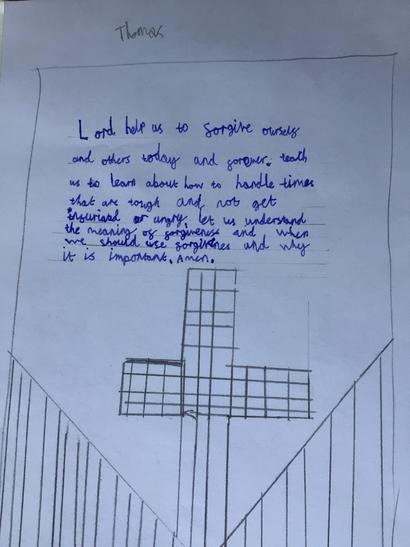 Thomas
Lord help us to forgive ourselfs
and others today and forever. teath
us to learn about how to handle times
that are tough and not get
insuriated or angry, let us understand
the meaning of forgiveness and when
we should use forgivnes and why
it is important. Amen.